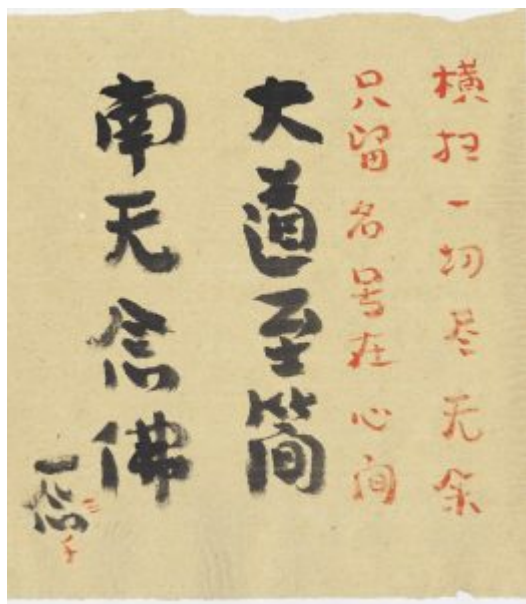 横扫一切尽无余
只留名号在心间
大道至简
南天念佛
一念